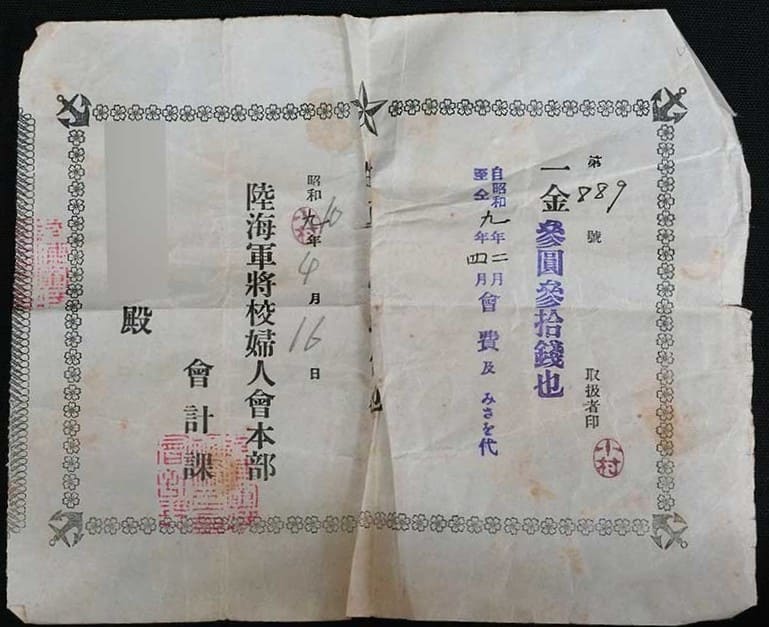 第889號
取扱者印
小村
一金參圓參拾錢也
自昭和九年二月
至仝年四月
會費及みさを代
昭和九10年4月16日
陸海軍將校婦人會本部
會計課
殿